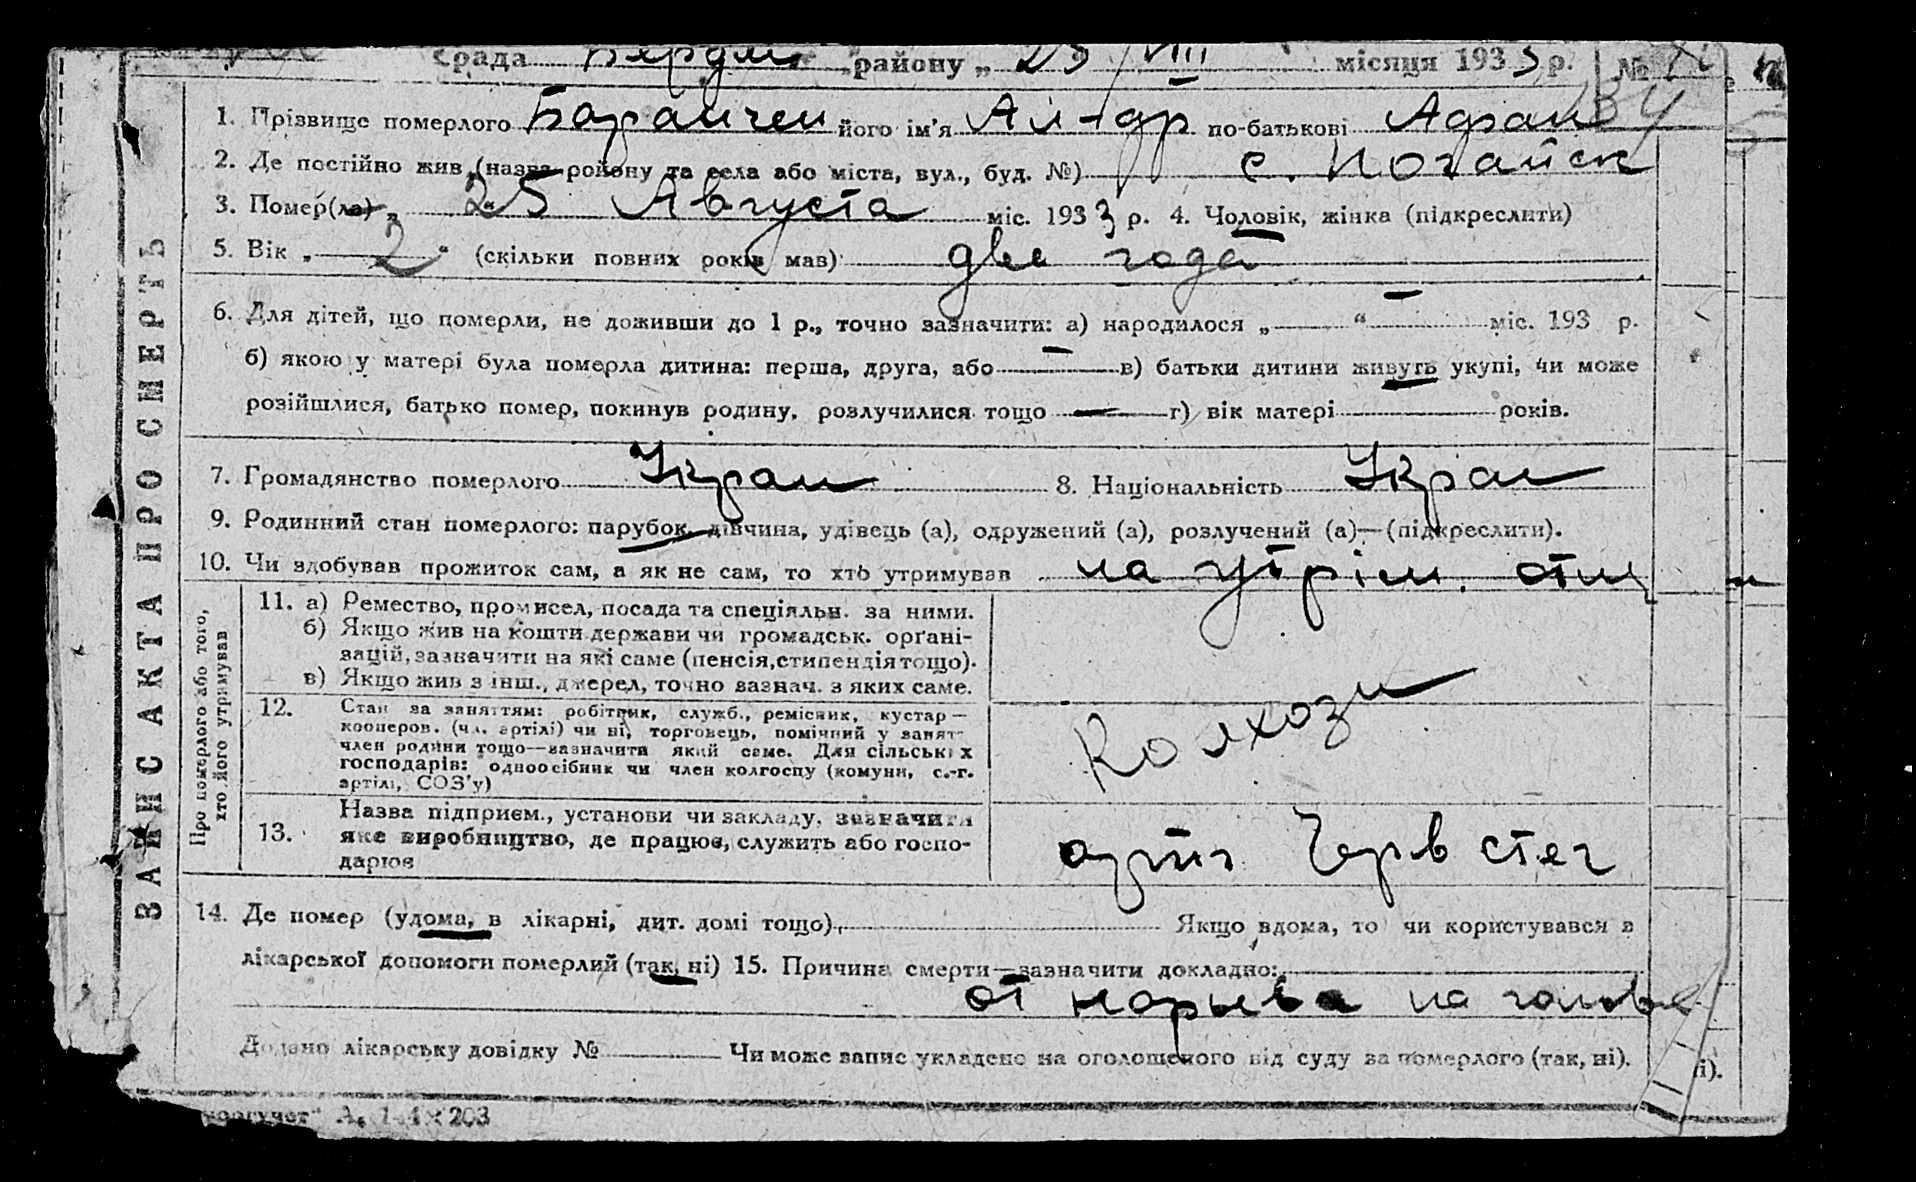 срада Бердян району „ 25 /VIII місяця 1933 р. №
1. Прізвище померлого його ім'я Ал-др по-батькові
2. Де постійно жив (назва району та села або міста, вул., буд. №) с. Ногайск
3. Помер(ла) „ 25 Августа міс. 1933 р. 4. Чоловік, жінка (підкреслити)
5. Вік „ 2 “ (скільки повних років мав) две года
6. Для дітей, що померли, не доживши до 1 р., точно зазначити: а) народилося „ — “ міс. 193 р.
б) якою у матері була померла дитина: перша, друга, або — в) батьки дитини живуть укупі, чи може
розійшлися, батько помер, покинув родину, розлучилися тощо — г) вік матері років.
7. Громадянство померлого Укран 8. Національність Укран
9. Родинний стан померлого: парубок, дівчина, удівець (а), одружений (а), розлучений (а)—(підкреслити).
10. Чи здобував прожиток сам, а як не сам, то хто утримував на утрім. отц
ЗАПИС АКТА ПРО СМЕРТЬ
Про померлого або того,
хто його утримував
11. а) Ремество, промисел, посада та спеціяльн. за ними.
б) Якщо жив на кошти держави чи громадськ. орґані-
зацій, зазначити на які саме (пенсія, стипендія тощо).
в) Якщо жив з інш., джерел, точно зазнач. з яких саме.
12. Стан за заняттям: робітник, служб., ремісник, кустар—
кооперов. (чл. артілі) чи ні, торговець, помічний у занят-
член родини тощо—зазначити який саме. Для сільських
господарів: одноосібник чи член колгоспу (комуни, с.-г.
артілі, СОЗ'у)
Колхозн
13. Назва підприєм., установи чи закладу, зазначити
яке виробництво, де працює, служить або госпо-
дарює
арт Черв стяг
14. Де помер (удома, в лікарні, дит. домі тощо) Якщо вдома, то чи користувався в
лікарської допомоги померлий (так, ні) 15. Причина смерти—зазначити докладно:
от нарыва на голове
Додано лікарську довідку № Чи може запис укладено на оголошеного від суду за померлого (так, ні).
і).
А. 203